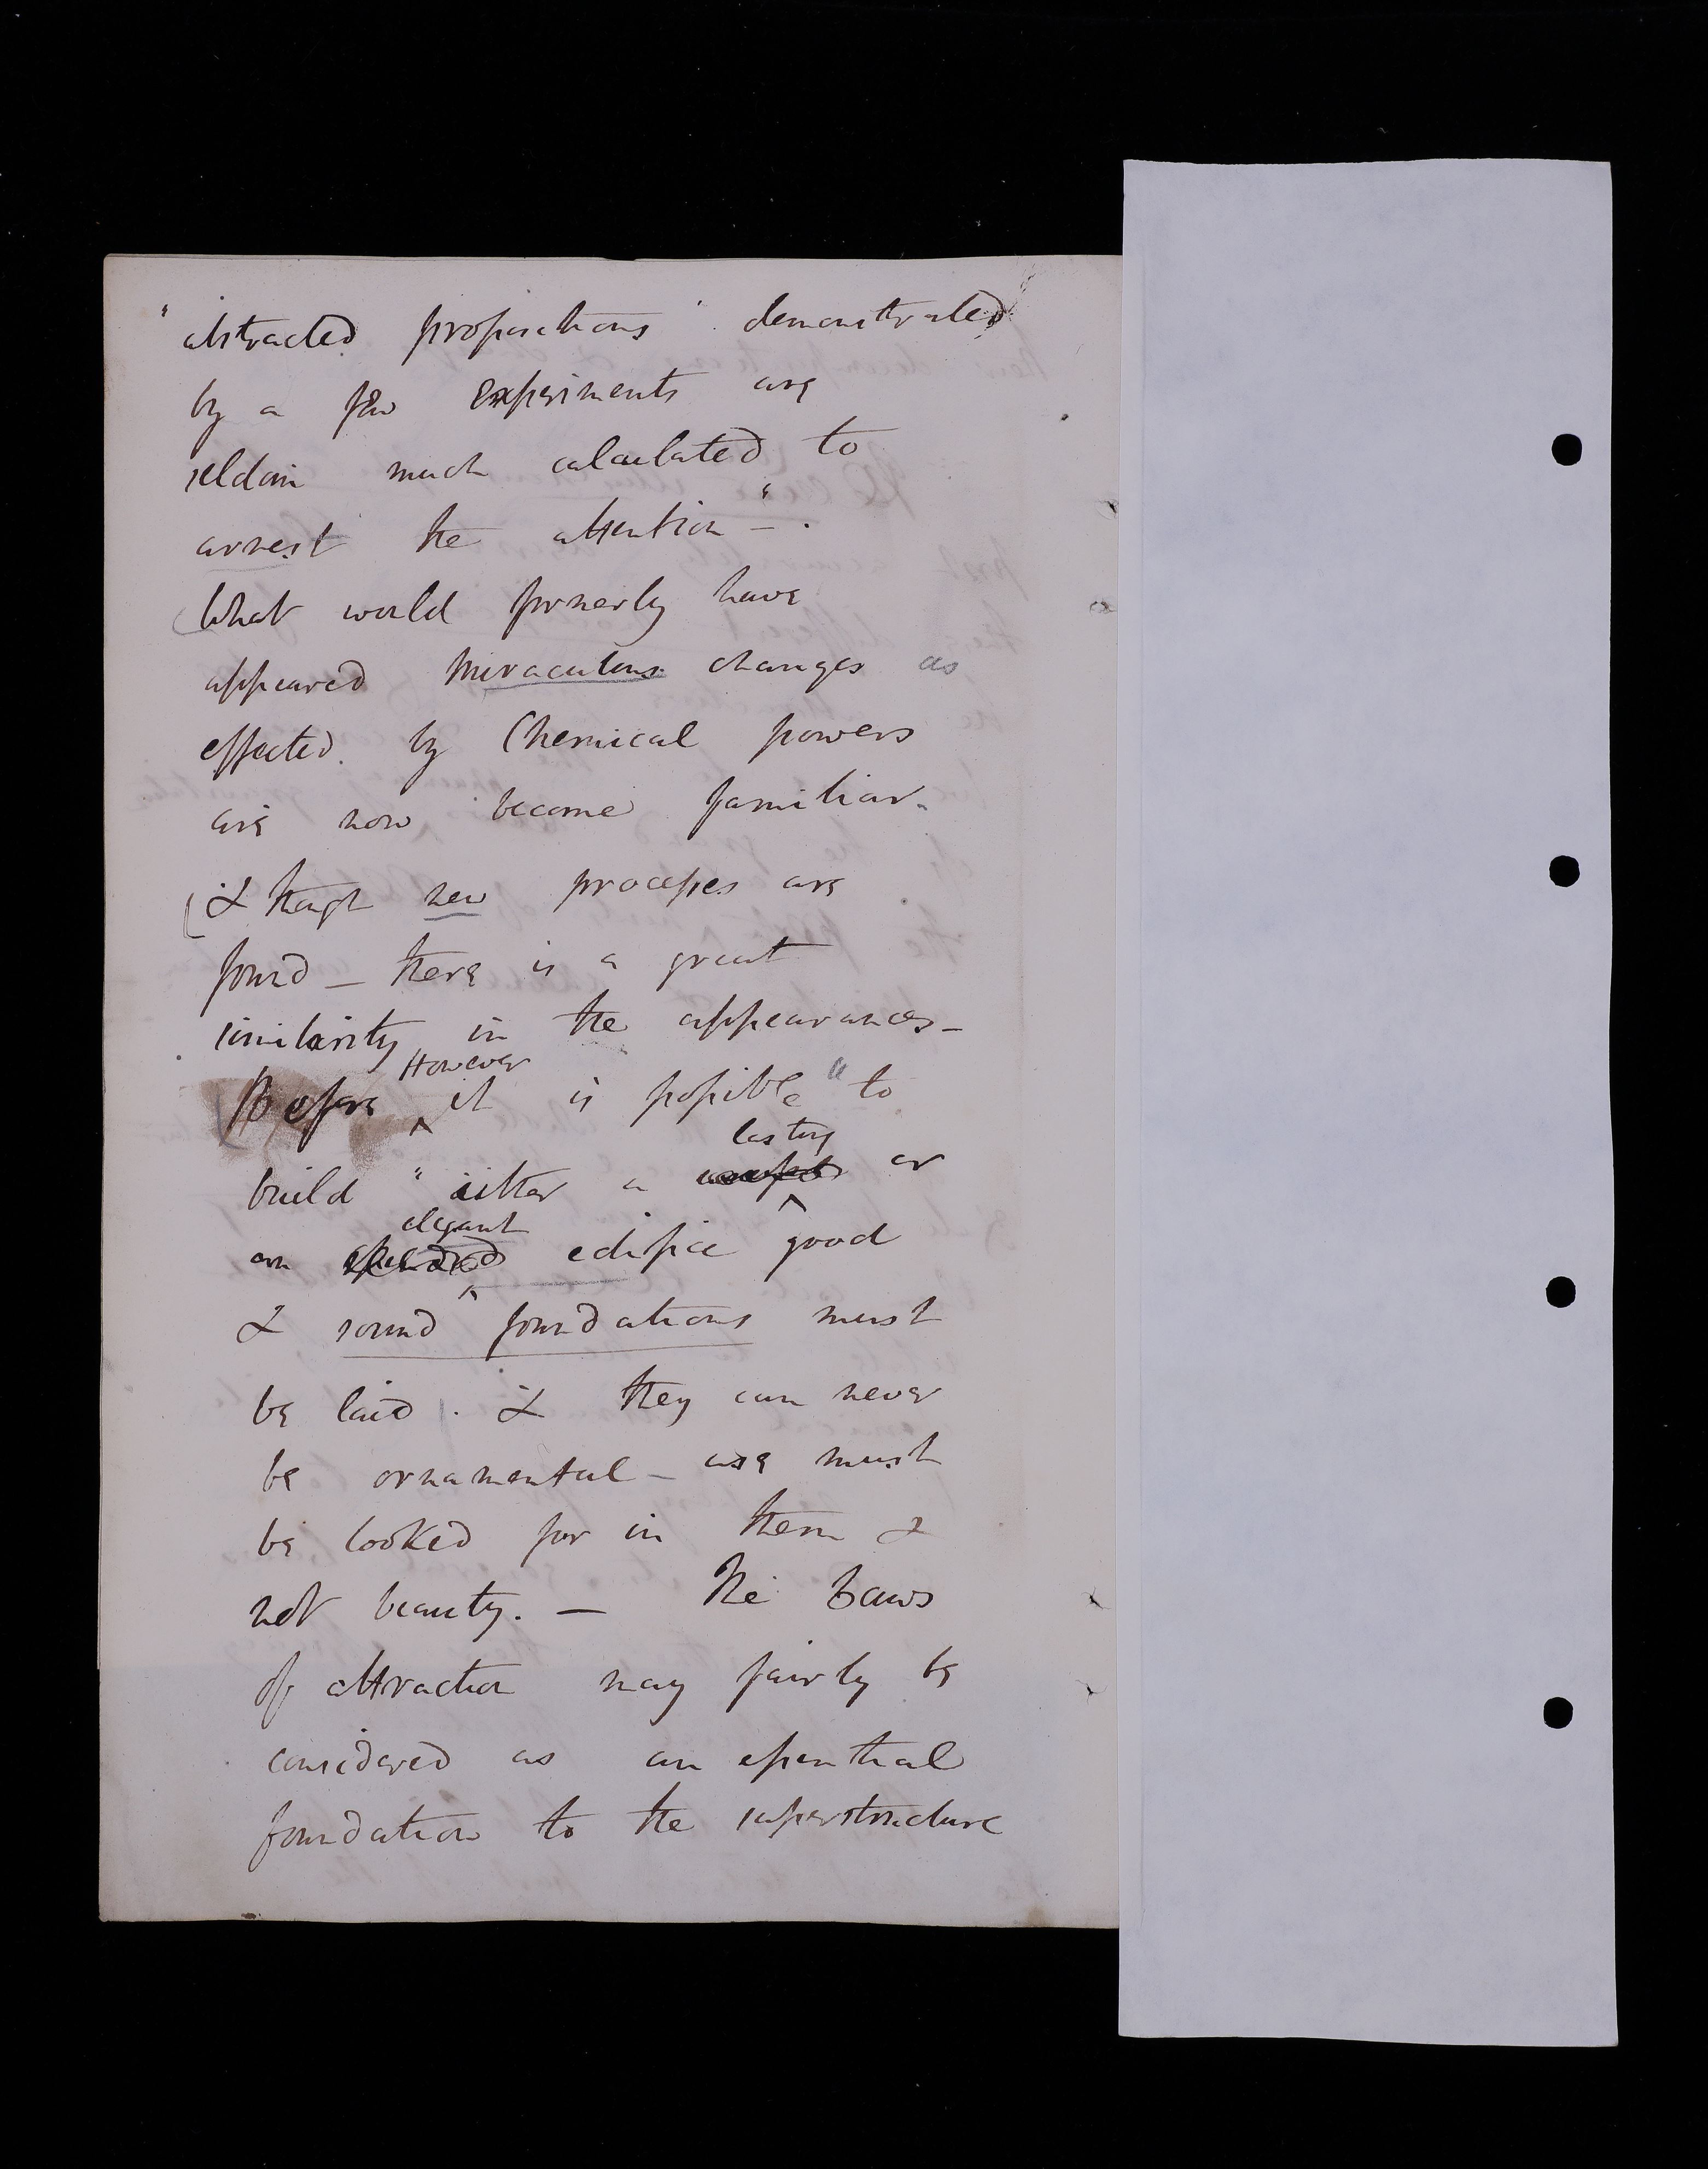 "abstracted propositions" demonstrated
by a few experiments are
seldom much calculated to
arrest the attention –".
What would formerly have
appeared miraculous changes as
effected by Chemical powers
are now become familiar.
& though new processes are
found – there is a great
similarity in the appearances –
However
Before it is possible "to
lasting
build " either a or
elegant
an splendid edifice good
& sound foundations must
be laid. & they can never
be ornamental – use must
be looked for in them &
not beauty. – The Laws
of attraction may fairly be
considered as an essential
foundation to the superstructure